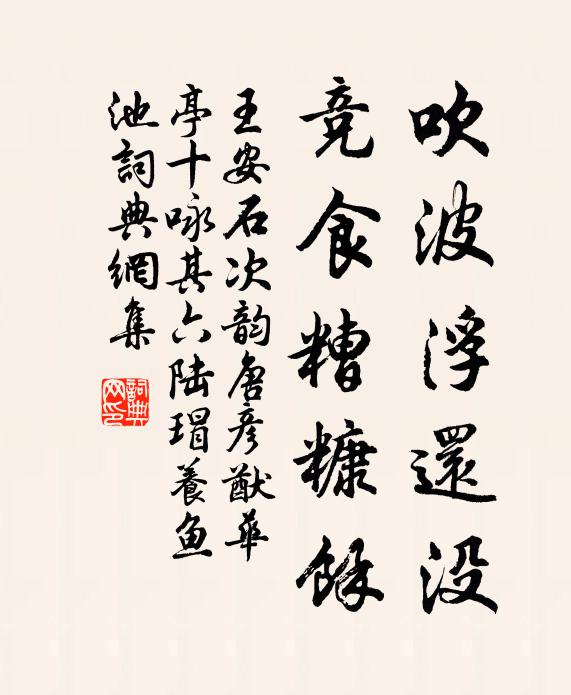 吹波浮還没
竞食糟糠餘
王安石次韵唐彦猷華
亭十咏其六陆瑁養鱼
池詞典網集
詞典
网印